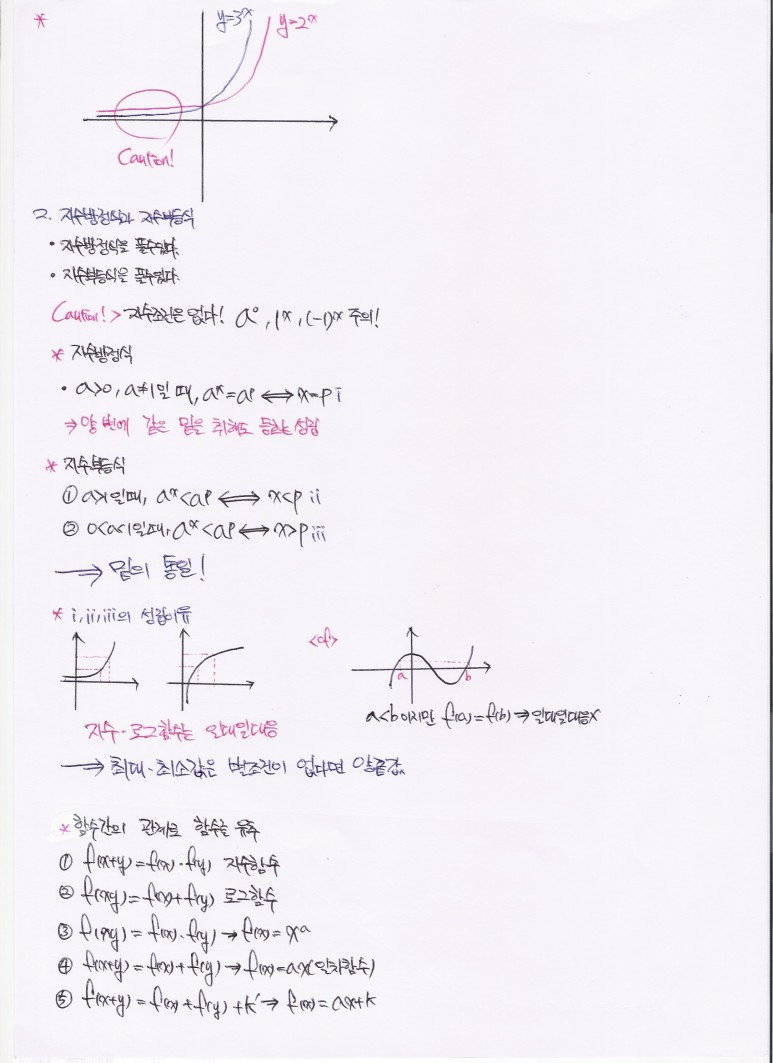 *
y=3ˣ y=2ˣ
Caution!
2. 지수방정식과 지수부등식
• 지수방정식을 풀수있다.
• 지수부등식을 풀수있다.
Caution! > 지수조건은 없다! a⁰, 1ˣ, (-1)ˣ 주의!
* 지수방정식
• a>0, a≠1일 때, aˣ=aᵖ ⟺ x=p i
⇒ 양 변에 같은 밑을 취해도 등호는 성립
* 지수부등식
① a>1일때, aˣ<aᵖ ⟺ x<p ii
② 0<a<1일때, aˣ<aᵖ ⟺ x>p iii
→ 밑의 통일!
* i, ii, iii의 성립이유
<cf>
a b
a<b이지만 f(a)=f(b) → 일대일대응x
지수·로그함수는 일대일대응
→ 최대·최소값은 별조건이 없다면 양끝값
* 함수간의 관계로 함수를 유추
① f(x+y)=f(x)·f(y) 지수함수
② f(xy)=f(x)+f(y) 로그함수
③ f(xy)=f(x)·f(y) → f(x)=xᵃ
④ f(x+y)=f(x)+f(y) → f(x)=ax(일차함수)
⑤ f(x+y)=f(x)+f(y)+k' → f(x)=ax+k